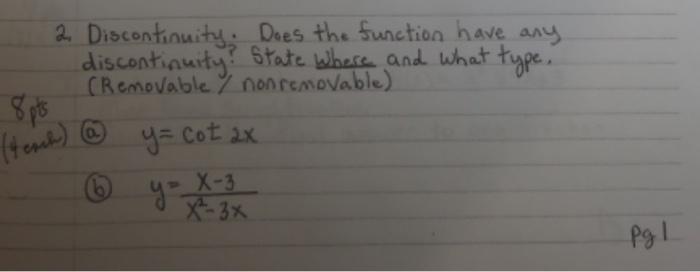 2. Discontinuity. Does the function have any
discontinuity? State where and what type.
(Removable / nonremovable)
8 pts
(4 each) (a) y = cot 2x
(b) y = x-3 / x²-3x
pg 1